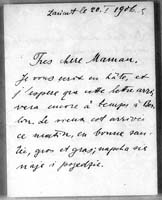 le 20. I 1906.
Très chère Maman.
Je vous écris en hâte, et
j'espère que cette lettre arri-
vera encore à temps à
lon. Le vieux est arrivé
ce matin, en bonne san-
té, gros et gras;
naje i